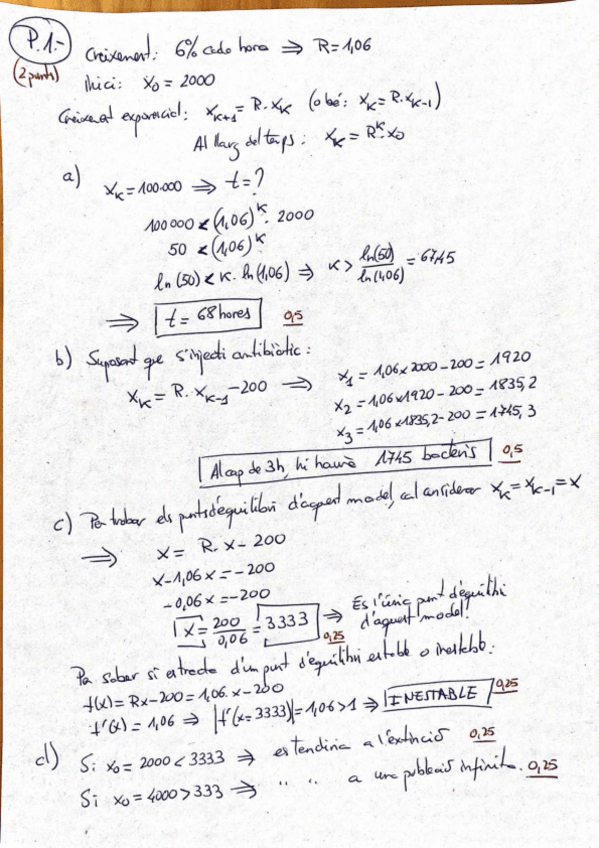 P.1.-
(2 punts)
Creixement: 6% cada hora ⇒ R=1,06
Inici: x₀ = 2000
Creixement exponencial: x_{K+1} = R·x_K (o bé: x_K = R·x_{K-1})
Al llarg del temps: x_K = R^K·x₀
a) x_K = 100.000 ⇒ t = ?
100 000 < (1,06)^K · 2000
50 < (1,06)^K
ln(50) < K·ln(1,06) ⇒ K > ln(50)/ln(1,06) = 67,15
⇒ t = 68 hores 0,5
b) Suposant que s'injecti antibiòtic:
x_K = R·x_{K-1} - 200 ⇒ x₁ = 1,06×2000-200 = 1920
x₂ = 1,06×1920-200 = 1835,2
x₃ = 1,06×1835,2-200 = 1745,3
Al cap de 3h, hi haurà 1745 bacteris 0,5
c) Per trobar els punts d'equilibri d'aquest model, cal considerar x_K = x_{K-1} = x
⇒ x = R·x - 200
x - 1,06x = -200
-0,06x = -200
x = 200/0,06 = 3333 0,25 ⇒ És l'únic punt d'equilibri
d'aquest model.
Per saber si es tracta d'un punt d'equilibri estable o inestable:
f(x) = Rx - 200 = 1,06·x - 200
f'(x) = 1,06 ⇒ |f'(x=3333)| = 1,06 > 1 ⇒ INESTABLE 0,25
d) Si x₀ = 2000 < 3333 ⇒ es tendiria a l'extinció 0,25
Si x₀ = 4000 > 333 ⇒ " " a una població infinita. 0,25